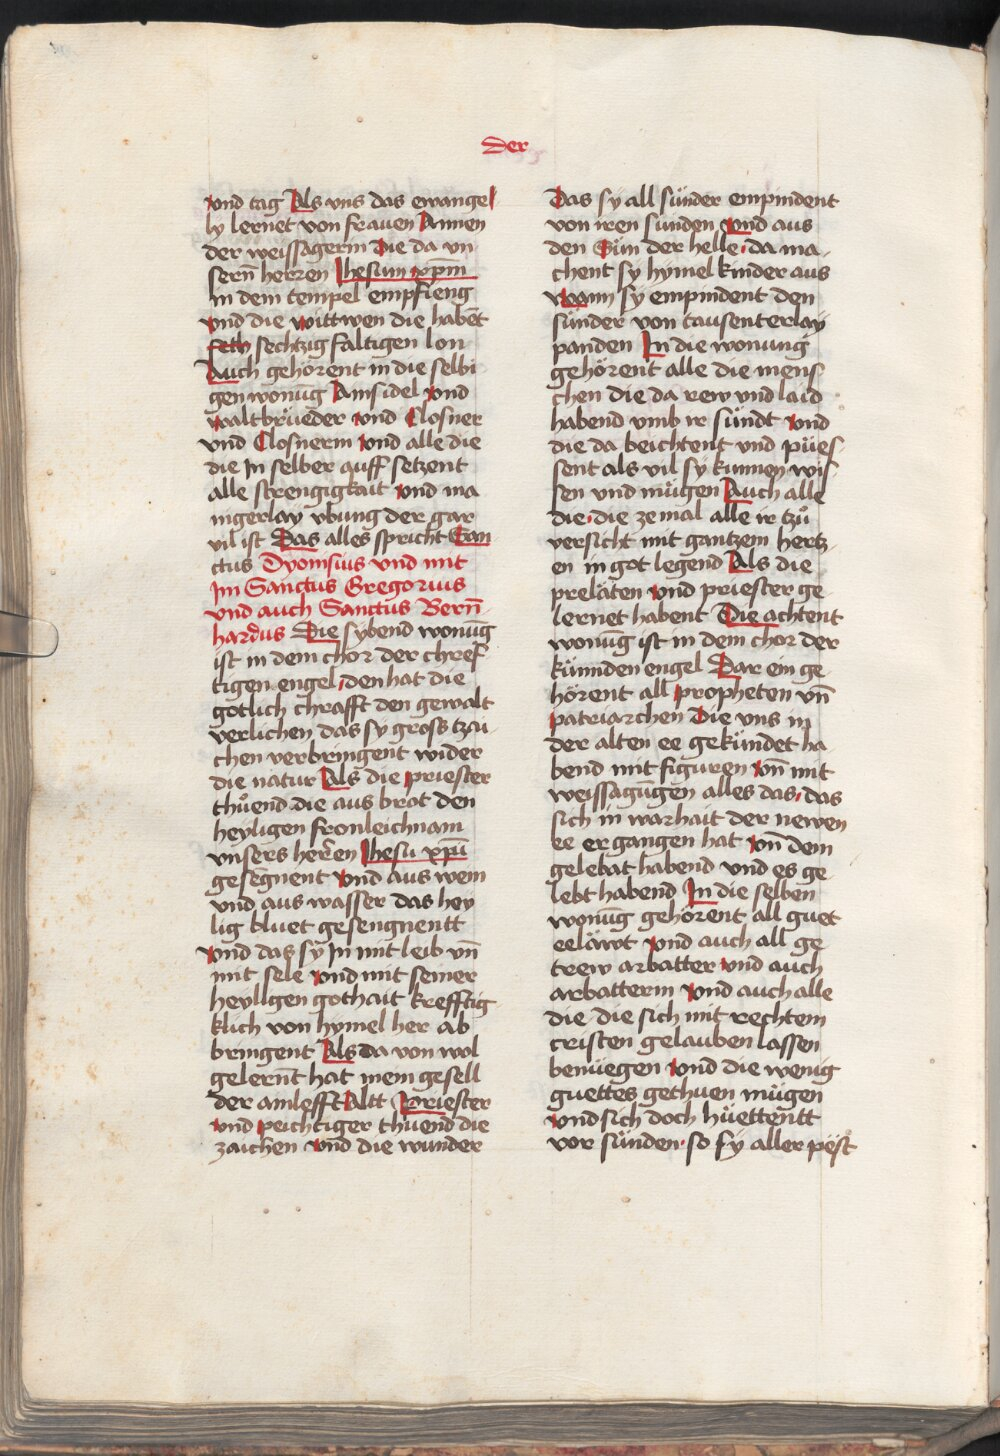 der
vnd tag Als vns das ewangel
ly lernet von frauen Annen
der weissagerin Die da vn
sern̄ herren Jhesum xp̄m
in dem tempel empfieng
vnd die wittwen die habēt
seth sechtzigfaltigen lon
Auch gehörent in die selbi
gen wonūg Ainsidel vnd
waltbrüeder vnd Closner
vnd Closnerin vnd alle die
die In selber auff setzent
alle strengigkait vnd ma
nigerlay vbung der gar
vil ist Das alles spricht San
ctus Dyonisius vnd mit
Im Sanctus Gregorius
vnd auch Sanctus Bern̄
hardus Die sybend wonūg
ist in dem chor der chref
tigen engel, den hat die
gotlich chrafft den gewalt
verlichen das sy gross tzai
chen verbringent wider
die natur Als die priester
thůend die aus brot den
heyligen fronleichnam
vnsers herren Jhesu xp̄ū
gesegnent Vnd aus wein
vnd aus wasser das hey
lig bluet gesengnentt
Vnd das sy In mit leib vn̄
mit sele vnd mit seiner
heyligen gothait krefftig
klich von hymel her ab
bringent Als da von wol
gelern̄t hat mein gesell
der ainlefft Altt Priester
vnd peichtiger thuend die
zaichen vnd die wunder
Das sy all sünder empindent
von iren sunden Vnd aus
den Süm der helle, da ma
chent sy hymel kinder aus
Wann sy empindent den
sünder von tausenterlay
panden In die wonung
gehörent alle die mens
chen die da rew vnd laid
habend vmb ir sündt vnd
die da beichtent vnd püес
sent als vil sy kunnen wis
sen vnd mügen Auch alle
die, die ze mal alle ir tzů
versicht mit gantzem hertz
en in got legend Als die
preläten vnd priester ge
lernet habent Die achtent
wonūg ist in dem chor der
künnden engel Dar ein ge
hörent all propheten vn̄
patriarchen Die vns in
der alten ee gekündet ha
bend mit figuren vn̄ mit
weissagūgen alles das, das
sich in warhait der newen
ee ergangen hat vn̄ dem
gelebat habend vnd es ge
lebt habend In die selben
wonūg gehörent all guet
eeläwt vnd auch all ge
trew arbatter vnd auch
arbatterin vnd auch alle
die, die sich mit rechtem
cristen gelauben lassen
benüegen vnd die wenig
guettes gethuen mügen
vnd sich doch hüettentt
vor sünden, so sy aller pest